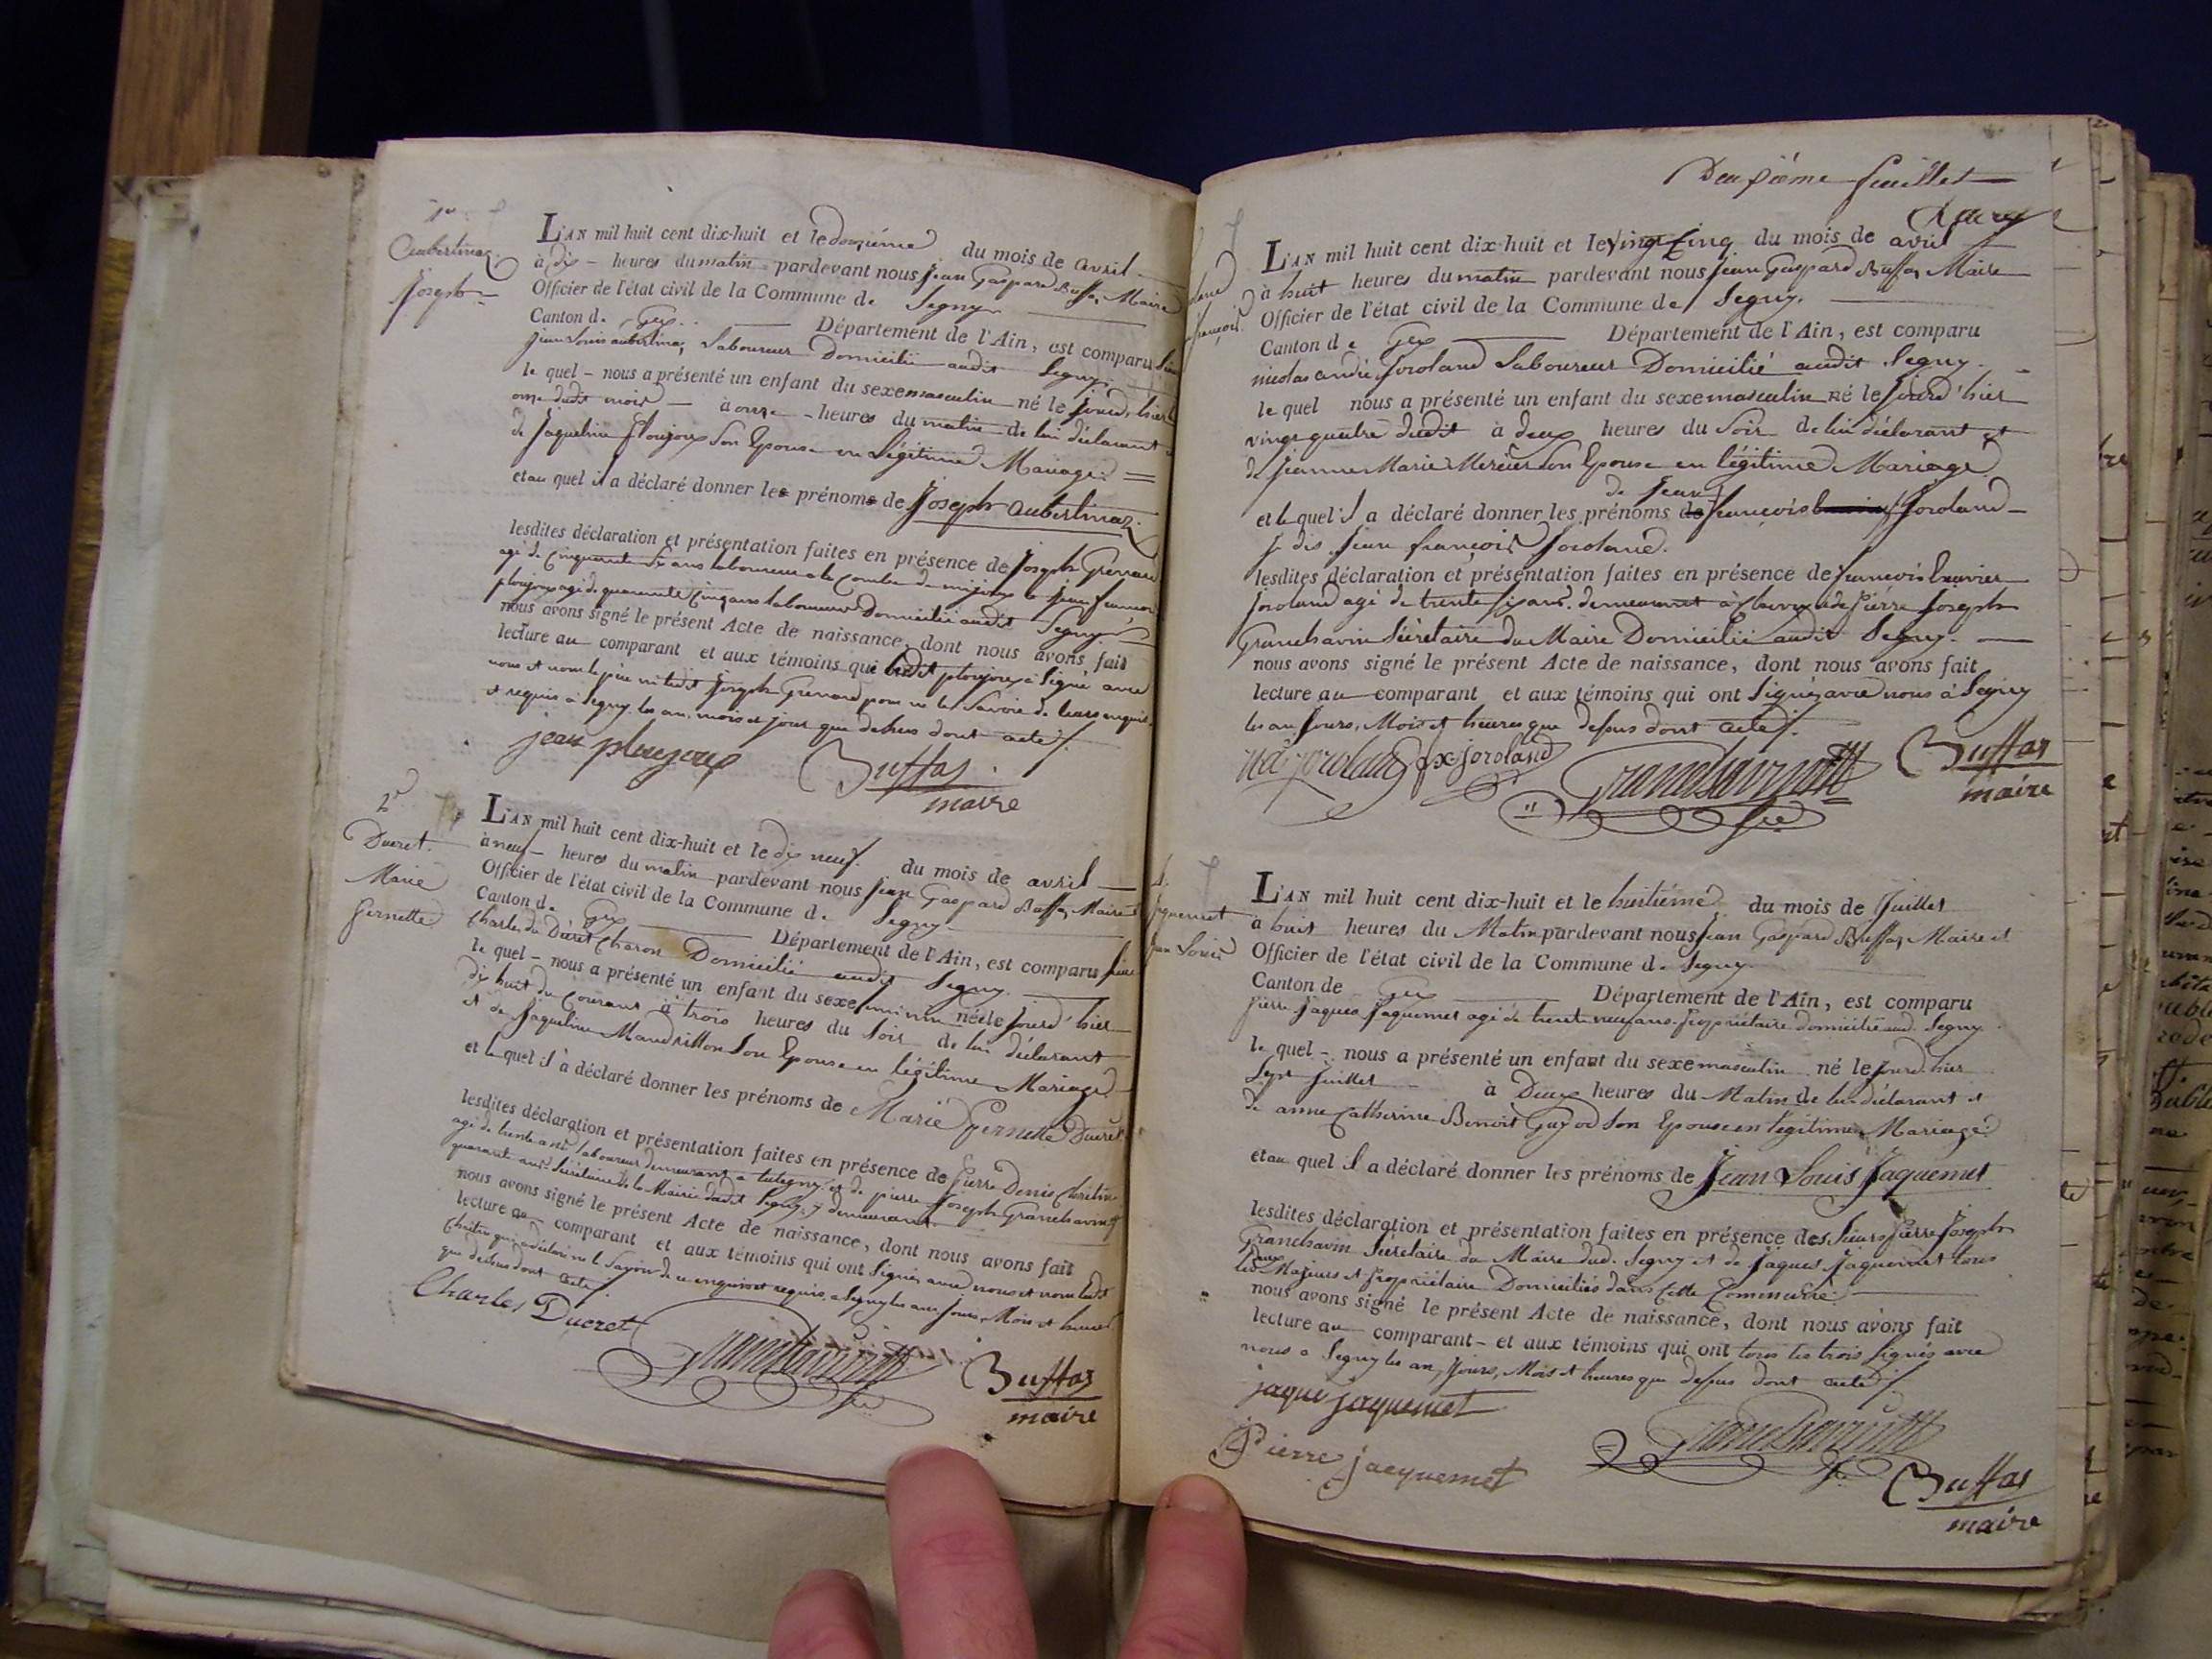 1er
Aubertinaz
Joseph
L'AN mil huit cent dix-huit et le douzième du mois de avril
à dix heures du matin pardevant nous Jean Gaspard Buffaz Maire
Officier de l'état civil de la Commune de Segny
Canton de Gex. Département de l'Ain, est comparu
Jean Louis aubertinaz Laboureur Domicilié audit Segny.
le quel nous a présenté un enfant du sexe masculin né le jourd'hier
onze dudit mois à onze heures du matin de lui déclarant
de Jaqueline Ploujoux Son Epouse en Légitime Mariage
et au quel il a déclaré donner les prénoms de Joseph Aubertinaz.
lesdites déclaration et présentation faites en présence de Joseph Grenard
agé de cinquante six ans laboureur à la Combe de mijoux & jean françois
ploujoux agé de quarante cinq ans laboureur Domicilié audit Segny
nous avons signé le présent Acte de naissance, dont nous avons fait
lecture au comparant et aux témoins qui ledit ploujoux à Signé avec
nous et non le père ni ledit Joseph Grenard pour ne le Savoir de leurs enquis
et requis à Segny les an, mois et jour que dessus dont acte
jean ploujoux
Buffaz
maire
2e
Ducret.
Marie
Pernette
L'AN mil huit cent dix-huit et le dix neuf. du mois de avril
à neuf heures du matin pardevant nous Jean Gaspard Buffaz Maire
Officier de l'état civil de la Commune de Segny.
Canton de Gex Département de l'Ain, est comparu
Charles Ducret Charon Domicilié audit Segny.
le quel nous a présenté un enfant du sexe feminin née le jourd'hier
dix huit du Courant à trois heures du Soir de lui déclarant
et de Jaqueline Mandrillon Son Epouse en légitime Mariage
et le quel il à déclaré donner les prénoms de Marie Pernette Ducret
lesdites déclaration et présentation faites en présence de Pierre Denis
agé de trente ans laboureur demeurant a tutegny et de pierre Joseph Granchavin
quarante ans Sécrétaire de la Mairie dudit Segny y demeurant
nous avons signé le présent Acte de naissance, dont nous avons fait
lecture au comparant et aux témoins qui ont Signés avec nous et non ledit
qui a déclaré ne le Savoir de ce enquis et requis, a Segny les ans, Jours, Mois et heures
que dessus dont acte
Charles Ducret
Granchavin
Buffaz
maire
Deuxième feuillet
L'AN mil huit cent dix-huit et le vingt cinq du mois de avril
à huit heures du matin pardevant nous Jean Gaspard Buffaz Maire
Officier de l'état civil de la Commune de Segny.
Canton de Gex Département de l'Ain, est comparu
nicolas andré Joroland Laboureur Domicilié audit Segny.
le quel nous a présenté un enfant du sexe masculin né le jourd'hier
vingt quatre dudit à deux heures du Soir de lui déclarant et
de Jeanne Marie Mercier Son Epouse en légitime Mariage
de Jean
et le quel il a déclaré donner les prénoms de françois Joroland
je dis Jean françois Joroland.
lesdites déclaration et présentation faites en présence de françois
Joroland agé de trente six ans. demeurant à & de Pierre Joseph
Granchavin Sécrétaire du Maire Domicilié audit Segny.
nous avons signé le présent Acte de naissance, dont nous avons fait
lecture au comparant et aux témoins qui ont Signés avec nous à Segny
les an Jours, Mois et heures que dessus dont acte
na joroland fx joroland
Granchavin
Buffaz
maire
4.
Jaquemet
Jean Louis
L'AN mil huit cent dix-huit et le huitième du mois de Juillet
à huit heures du Matin pardevant nous Jean Gaspard Buffaz Maire et
Officier de l'état civil de la Commune de Segny
Canton de Gex Département de l'Ain, est comparu
Pierre Jaques Jaquemet agé de trente neuf ans. Propriétaire domicilié aud. Segny
le quel nous a présenté un enfant du sexe masculin né le jourd'hier
Sept Juillet à Deux heures du Matin de lui déclarant et
de anne Catherine Benoit Guyod Son Epouse en légitime Mariage
et au quel il a déclaré donner les prénoms de Jean Louis Jaquemet
lesdites déclaration et présentation faites en présence des Sieurs Pierre Joseph
Granchavin Sécrétaire du Maire dud. Segny et de Jaques Jaquemet tous
deux Majeurs et Propriétaire Domiciliés dans Cette Commune.
nous avons signé le présent Acte de naissance, dont nous avons fait
lecture au comparant et aux témoins qui ont tous les trois Signés avec
nous a Segny les an, Jours, Mois et heures que dessus dont acte
jaque jaquemet
Granchavin
Pierre jacquemet
Buffaz
maire